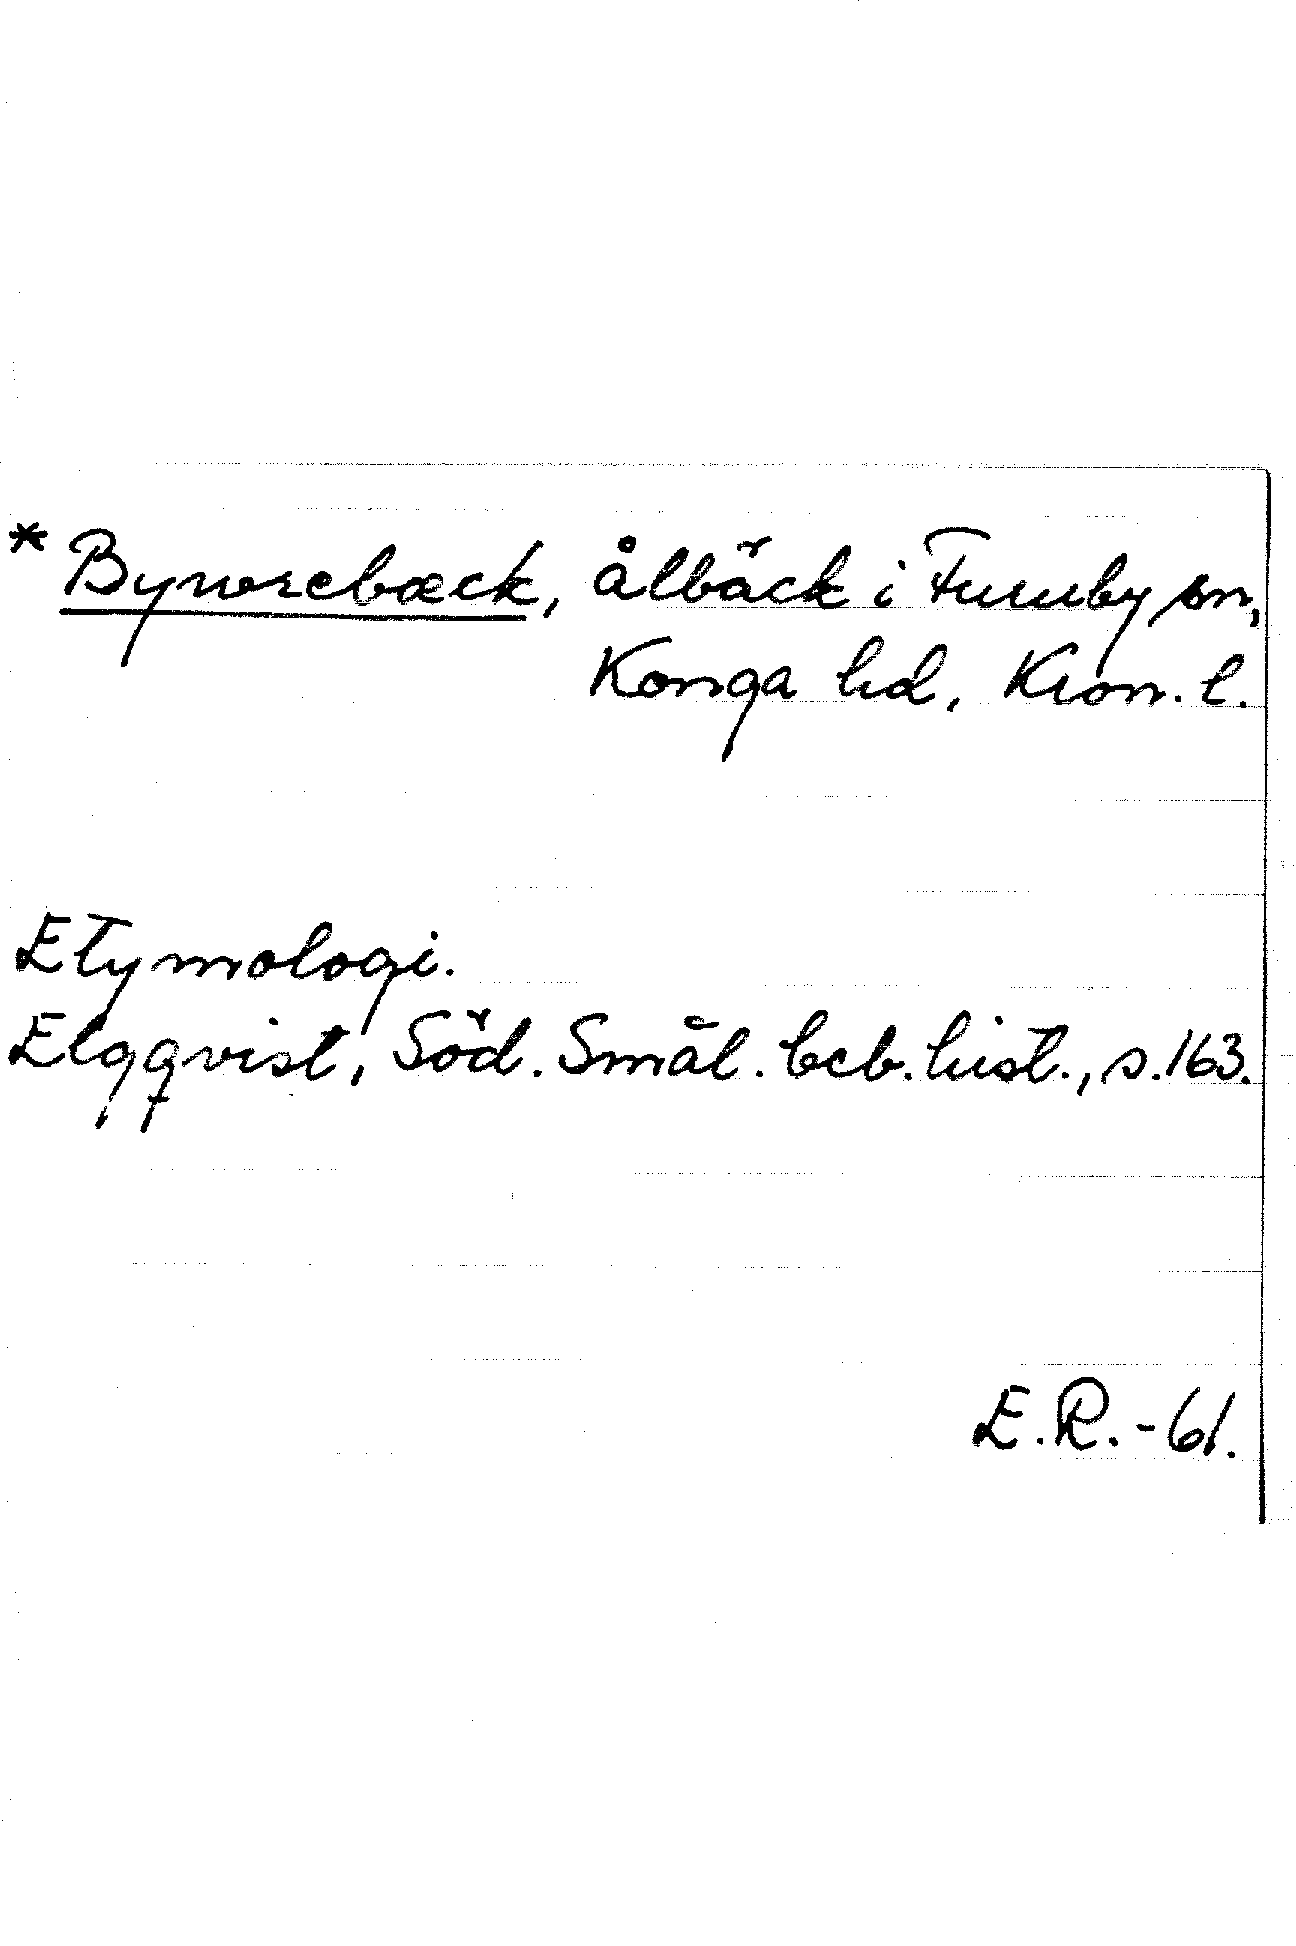 * Byworebæck, ålbäck i Furuby sn,
Konga hd, Kron. l.
Etymologi.
Elgqvist, Söd. Smål. beb. hist., s. 163.
E. R. -61.